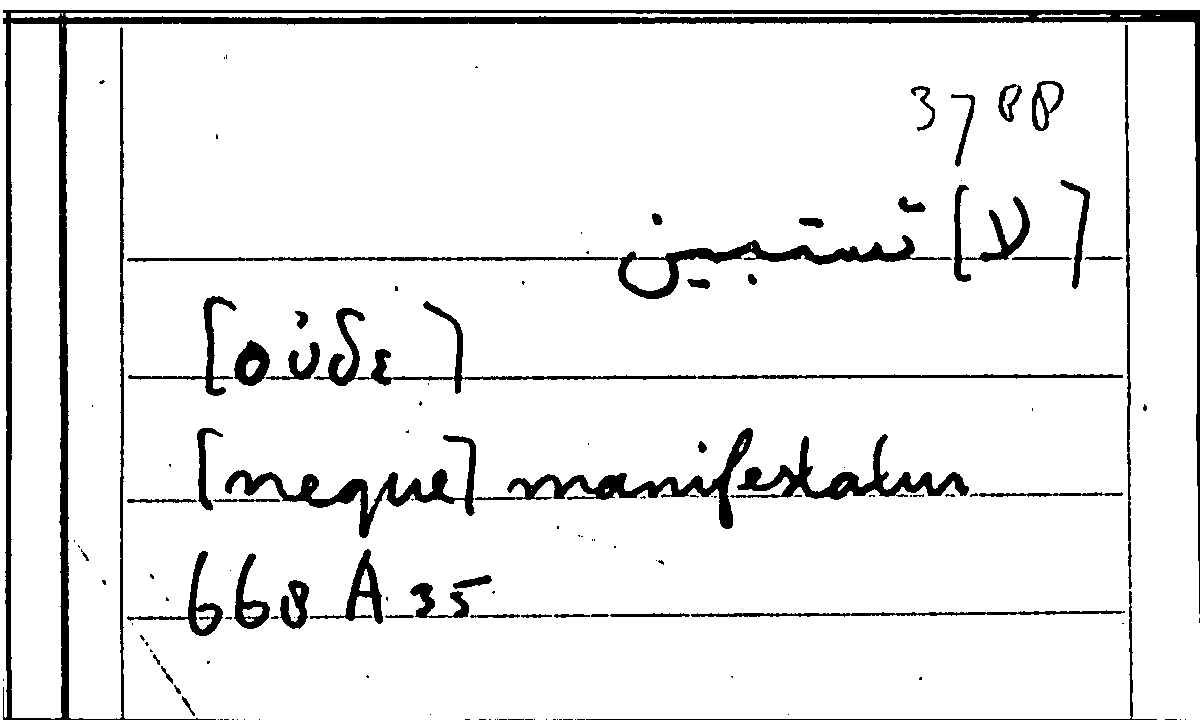 3788
[لا] تستبين
[οὐδε]
[neque] manifestatur
668 A 35